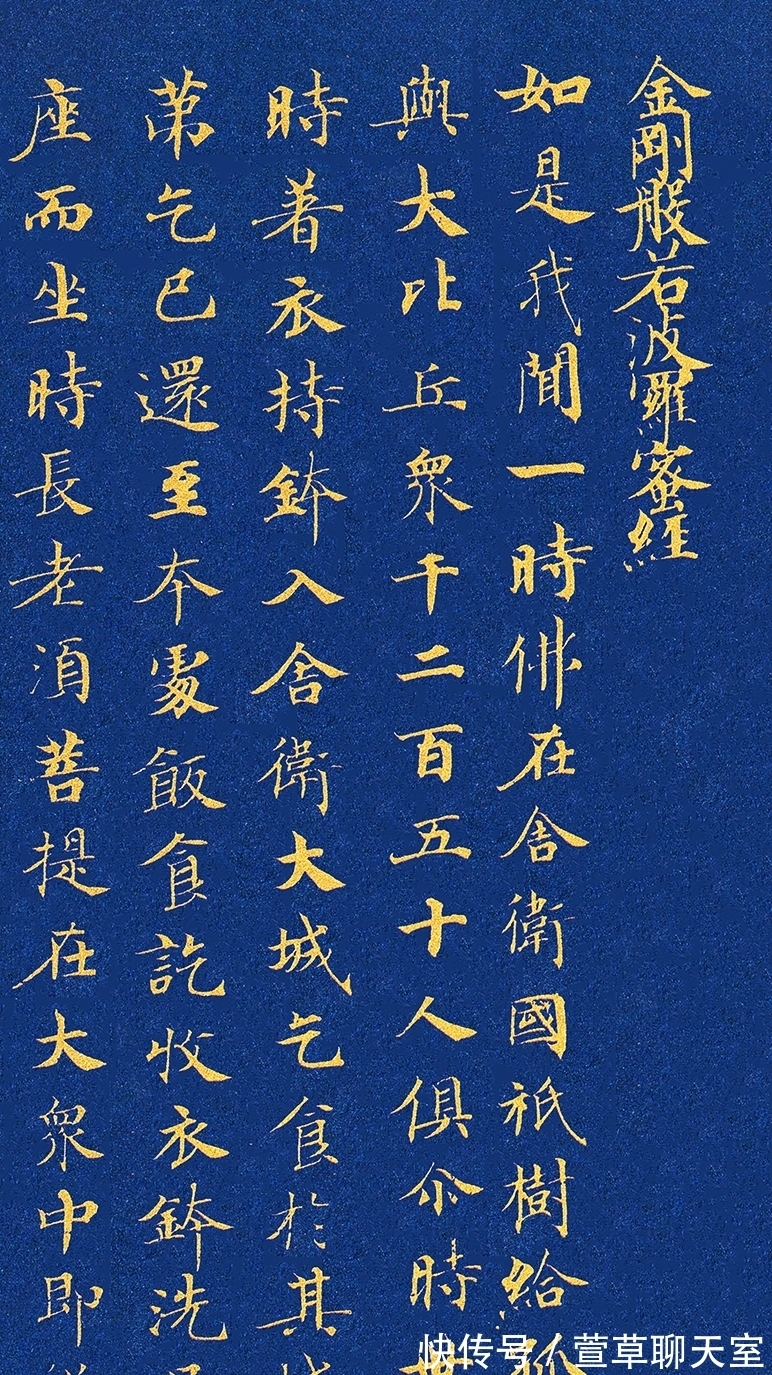 金剛般若波羅蜜經
如是我聞一時佛在舍衛國祇樹給孤
與大比丘衆千二百五十人俱尒時
時著衣持鉢入舍衛大城乞食於其
苐乞已還至本處飯食訖收衣鉢洗
座而坐時長老須菩提在大衆中即
快传号/萱草聊天室